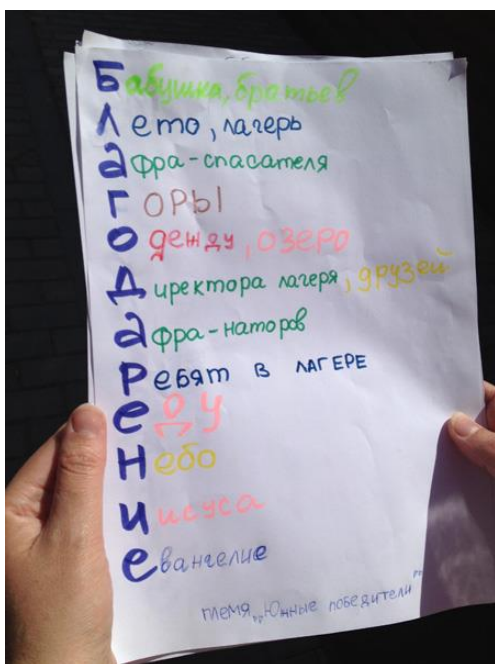 Бабушка, братьев
Лето, лагерь
афра-спасателя
Горы
одежду, озеро
Директора лагеря, друзей
афра-наторов
Ребят в ЛАГЕРЕ
еду
Небо
Иисуса
евангелие
племя „Юнные победители"